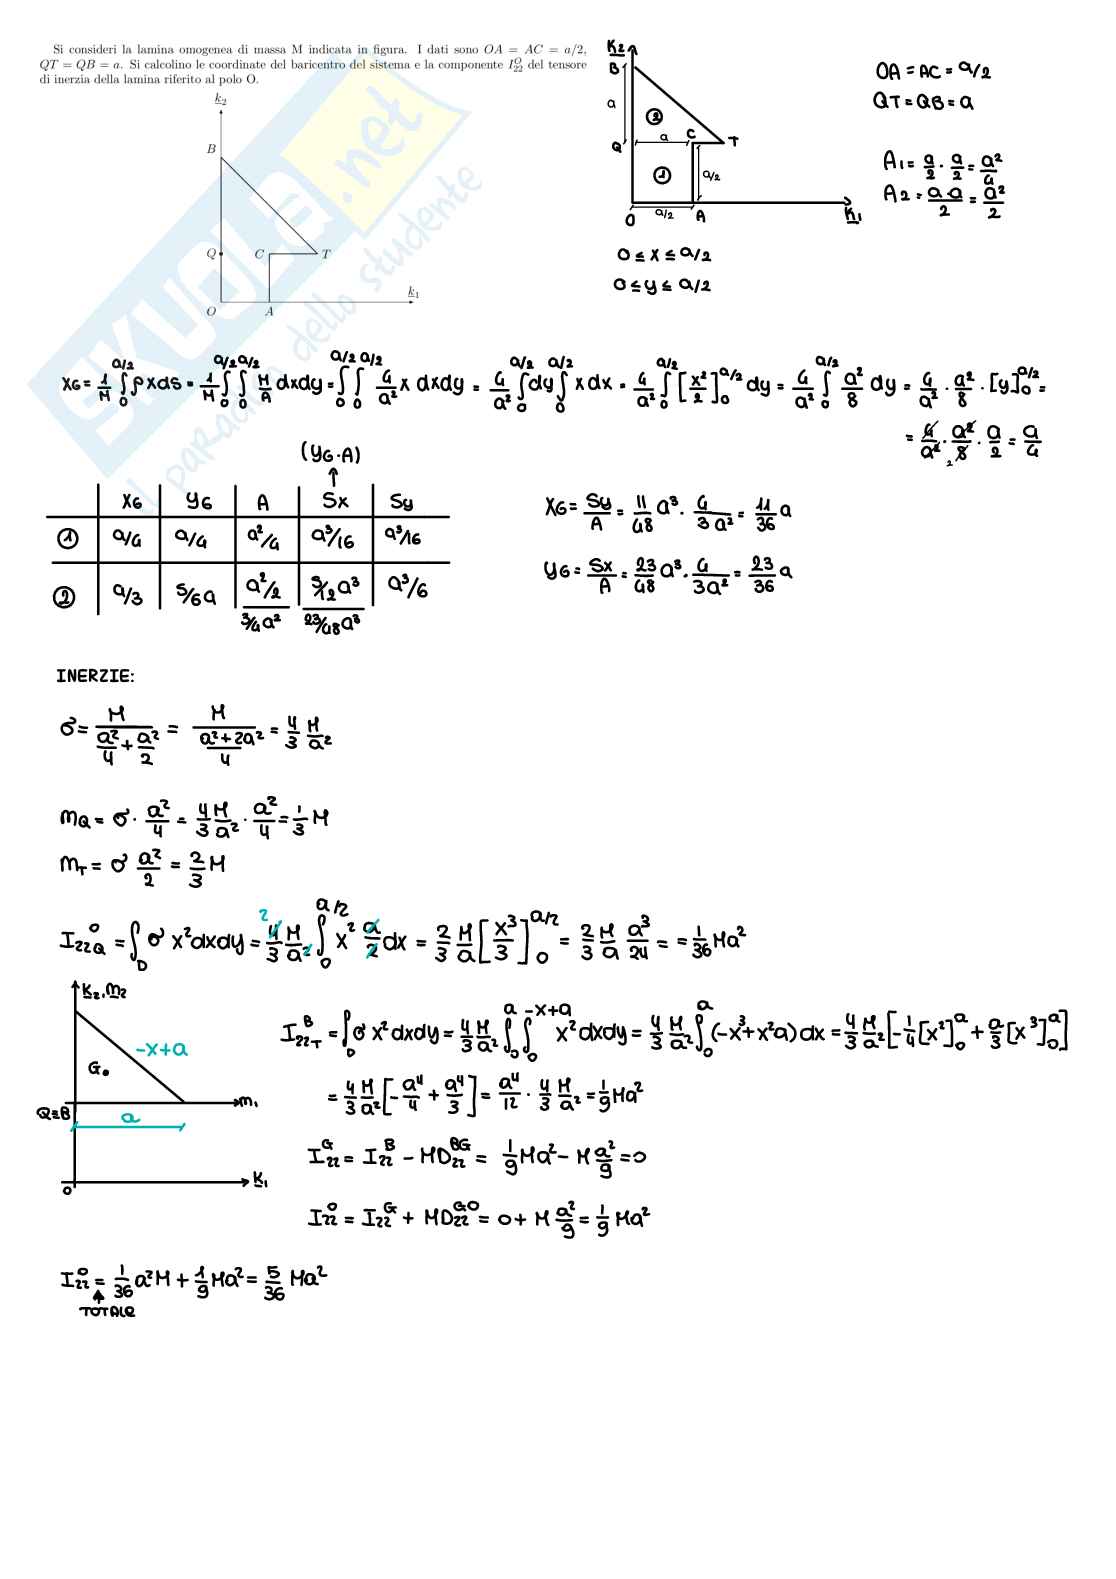 Si consideri la lamina omogenea di massa M indicata in figura. I dati sono OA = AC = a/2,
QT = QB = a. Si calcolino le coordinate del baricentro del sistema e la componente I₂₂ᴼ del tensore
di inerzia della lamina riferito al polo O.
k₂
B
Q C T
O A k₁
SKUOLA.net
il paradiso dello studente
K₂
B
a
②
Q a C T
① a/2
O a/2 A K₁
OA = AC = a/2
QT = QB = a
A₁ = a/2 · a/2 = a²/4
A₂ = a·a/2 = a²/2
0 ≤ x ≤ a/2
0 ≤ y ≤ a/2
XG = 1/M ∫₀^{a/2} ρxds = 1/M ∫₀^{a/2} ∫₀^{a/2} M/A dxdy = ∫₀^{a/2} ∫₀^{a/2} 4/a² x dxdy = 4/a² ∫₀^{a/2} dy ∫₀^{a/2} x dx = 4/a² ∫₀^{a/2} [x²/2]₀^{a/2} dy = 4/a² ∫₀^{a/2} a²/8 dy = 4/a² · a²/8 · [y]₀^{a/2} =
= 4/a² · a²/8 · a/2 = a/4
2
(YG·A)
↑
XG YG A Sx Sy
① a/4 a/4 a²/4 a³/16 a³/16
② a/3 5/6a a²/2 5/12a³ a³/6
3/4a² 23/48a³
XG = Sy/A = 11/48 a³ · 4/3a² = 11/36 a
YG = Sx/A = 23/48 a³ · 4/3a² = 23/36 a
INERZIE:
σ = M/(a²/4 + a²/2) = M/((a²+2a²)/4) = 4/3 M/a²
mQ = σ · a²/4 = 4/3 M/a² · a²/4 = 1/3 M
mT = σ a²/2 = 2/3 M
I₂₂Qᴼ = ∫_D σ x²dxdy = 2 4/3 M/a² ∫₀^{a/2} x² a/2 dx = 2/3 M/a [x³/3]₀^{a/2} = 2/3 M/a a³/24 = = 1/36 Ma²
K₂,m₂
-x+a
G
Q≡B m₁
a
O K₁
I₂₂Tᴮ = ∫_D σ x²dxdy = 4/3 M/a² ∫₀^a ∫₀^{-x+a} x²dxdy = 4/3 M/a² ∫₀^a (-x³+x²a)dx = 4/3 M/a² [-1/4[x²]₀^a + a/3[x³]₀^a]
= 4/3 M/a² [-a⁴/4 + a⁴/3] = a⁴/12 · 4/3 M/a² = 1/9 Ma²
I₂₂ᴳ = I₂₂ᴮ - MD₂₂ᴮᴳ = 1/9 Ma² - M a²/9 = 0
I₂₂ᴼ = I₂₂ᴳ + MD₂₂ᴳᴼ = 0 + M a²/9 = 1/9 Ma²
I₂₂ᴼ = 1/36 a²M + 1/9 Ma² = 5/36 Ma²
↑
TOTALE